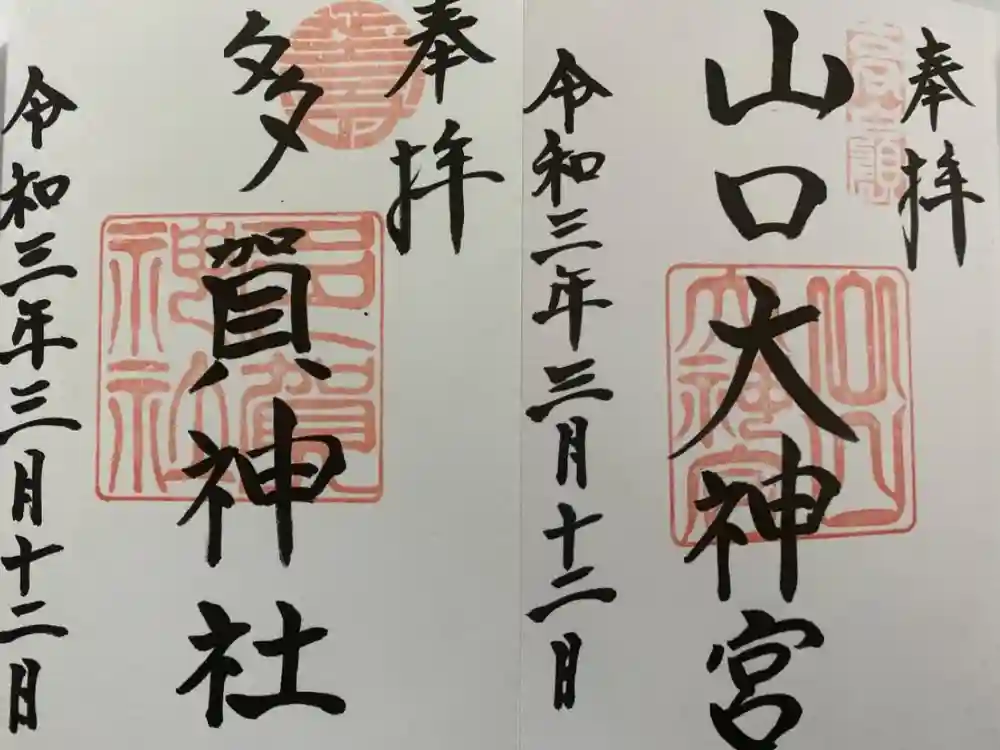 奉拝
山口大神宮
令和三年三月十二日
高嶺
山口大神宮
奉拝
多賀神社
令和三年三月十二日
多賀神社